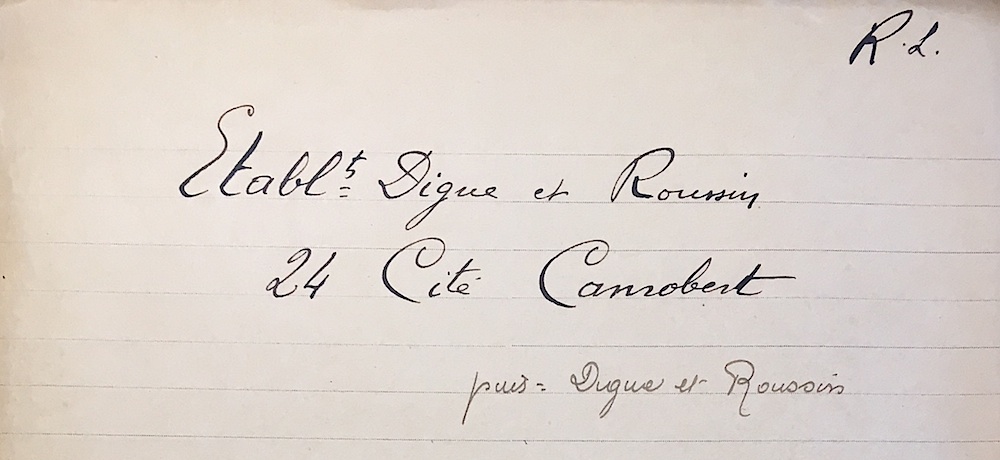 R. L.
Etablts Digue et Roussin
24 Cité Canrobert
puis = Digue et Roussin